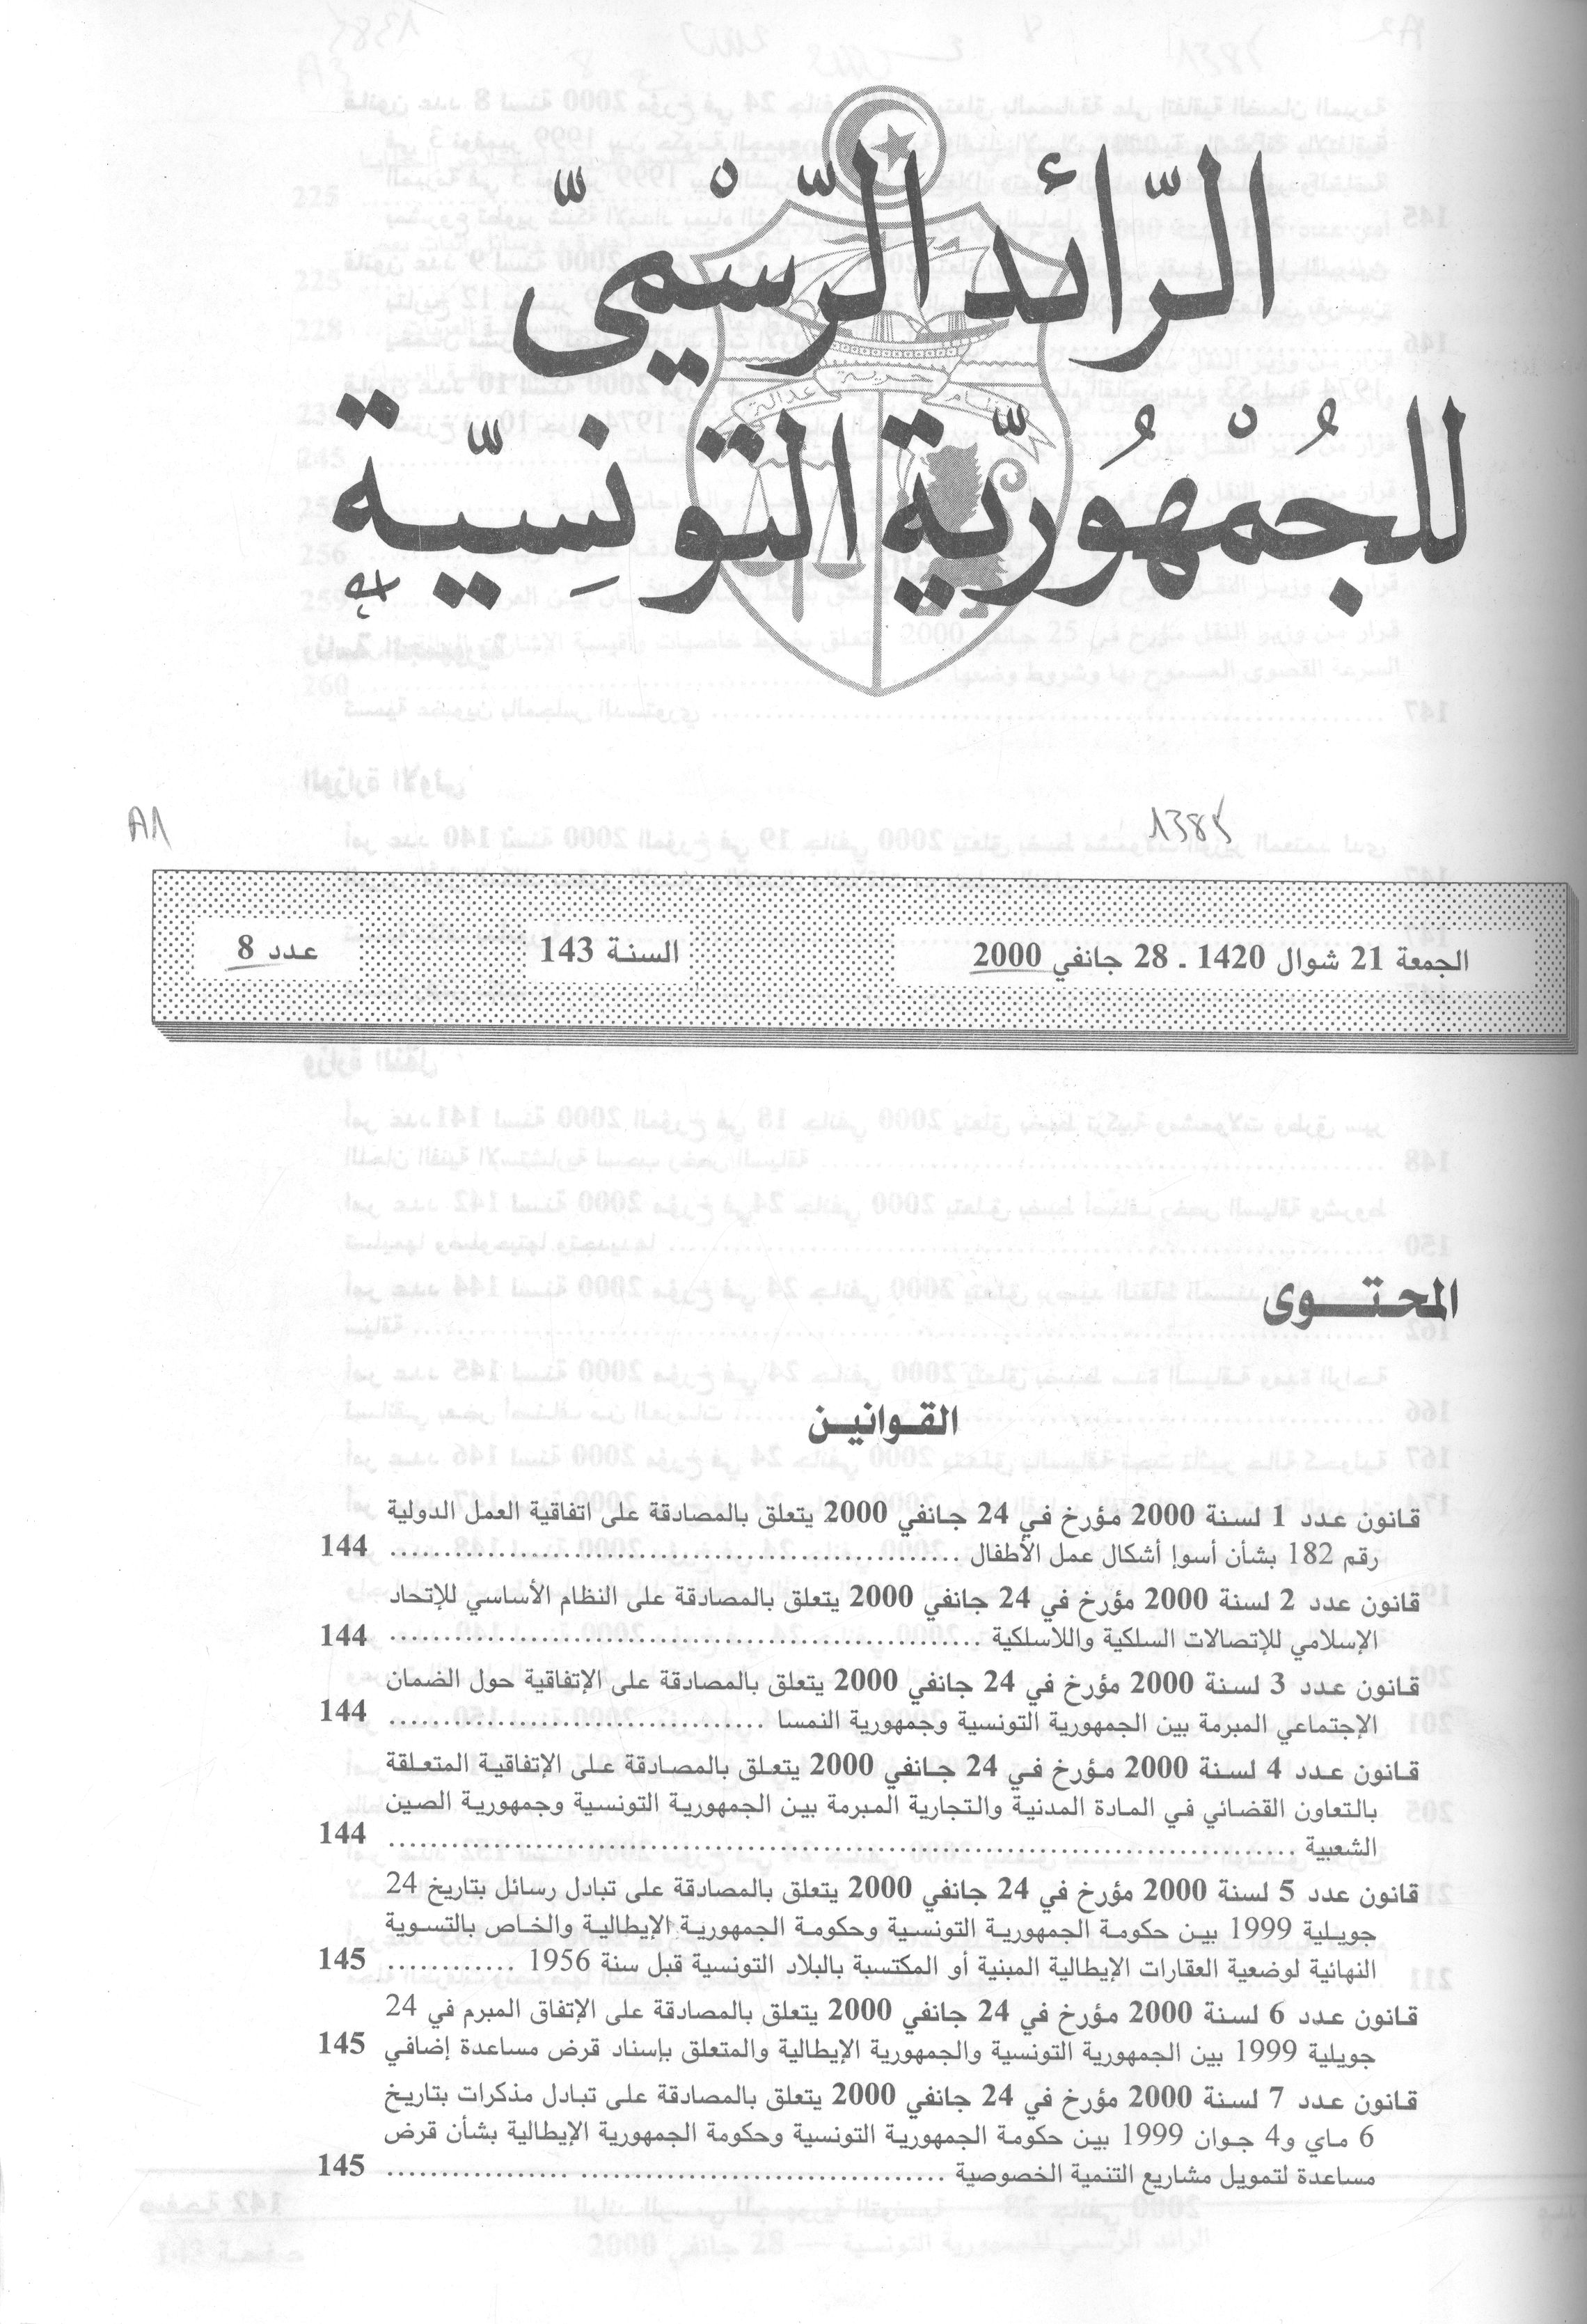 الرّائد الرّسْميّ
للجُمْهُوريّة التّونِسيّة
نظام
حرية
عدالة
A1
1385
الجمعة 21 شوال 1420 ـ 28 جانفي 2000
السنة 143
عدد 8
المحتوى
القوانين
قانون عدد 1 لسنة 2000 مؤرخ في 24 جانفي 2000 يتعلق بالمصادقة على اتفاقية العمل الدولية
رقم 182 بشأن أسوإ أشكال عمل الأطفال ................................................ 144
قانون عدد 2 لسنة 2000 مؤرخ في 24 جانفي 2000 يتعلق بالمصادقة على النظام الأساسي للإتحاد
الإسلامي للإتصالات السلكية واللاسلكية ................................................ 144
قانون عدد 3 لسنة 2000 مؤرخ في 24 جانفي 2000 يتعلق بالمصادقة على الإتفاقية حول الضمان
الإجتماعي المبرمة بين الجمهورية التونسية وجمهورية النمسا ................................ 144
قانون عدد 4 لسنة 2000 مؤرخ في 24 جانفي 2000 يتعلق بالمصادقة على الإتفاقية المتعلقة
بالتعاون القضائي في المادة المدنية والتجارية المبرمة بين الجمهورية التونسية وجمهورية الصين
الشعبية ................................................................................ 144
قانون عدد 5 لسنة 2000 مؤرخ في 24 جانفي 2000 يتعلق بالمصادقة على تبادل رسائل بتاريخ 24
جويلية 1999 بين حكومة الجمهورية التونسية وحكومة الجمهورية الإيطالية والخاص بالتسوية
النهائية لوضعية العقارات الإيطالية المبنية أو المكتسبة بالبلاد التونسية قبل سنة 1956 ............ 145
قانون عدد 6 لسنة 2000 مؤرخ في 24 جانفي 2000 يتعلق بالمصادقة على الإتفاق المبرم في 24
جويلية 1999 بين الجمهورية التونسية والجمهورية الإيطالية والمتعلق بإسناد قرض مساعدة إضافي 145
قانون عدد 7 لسنة 2000 مؤرخ في 24 جانفي 2000 يتعلق بالمصادقة على تبادل مذكرات بتاريخ
6 ماي و4 جوان 1999 بين حكومة الجمهورية التونسية وحكومة الجمهورية الإيطالية بشأن قرض
مساعدة لتمويل مشاريع التنمية الخصوصية ................................................ 145